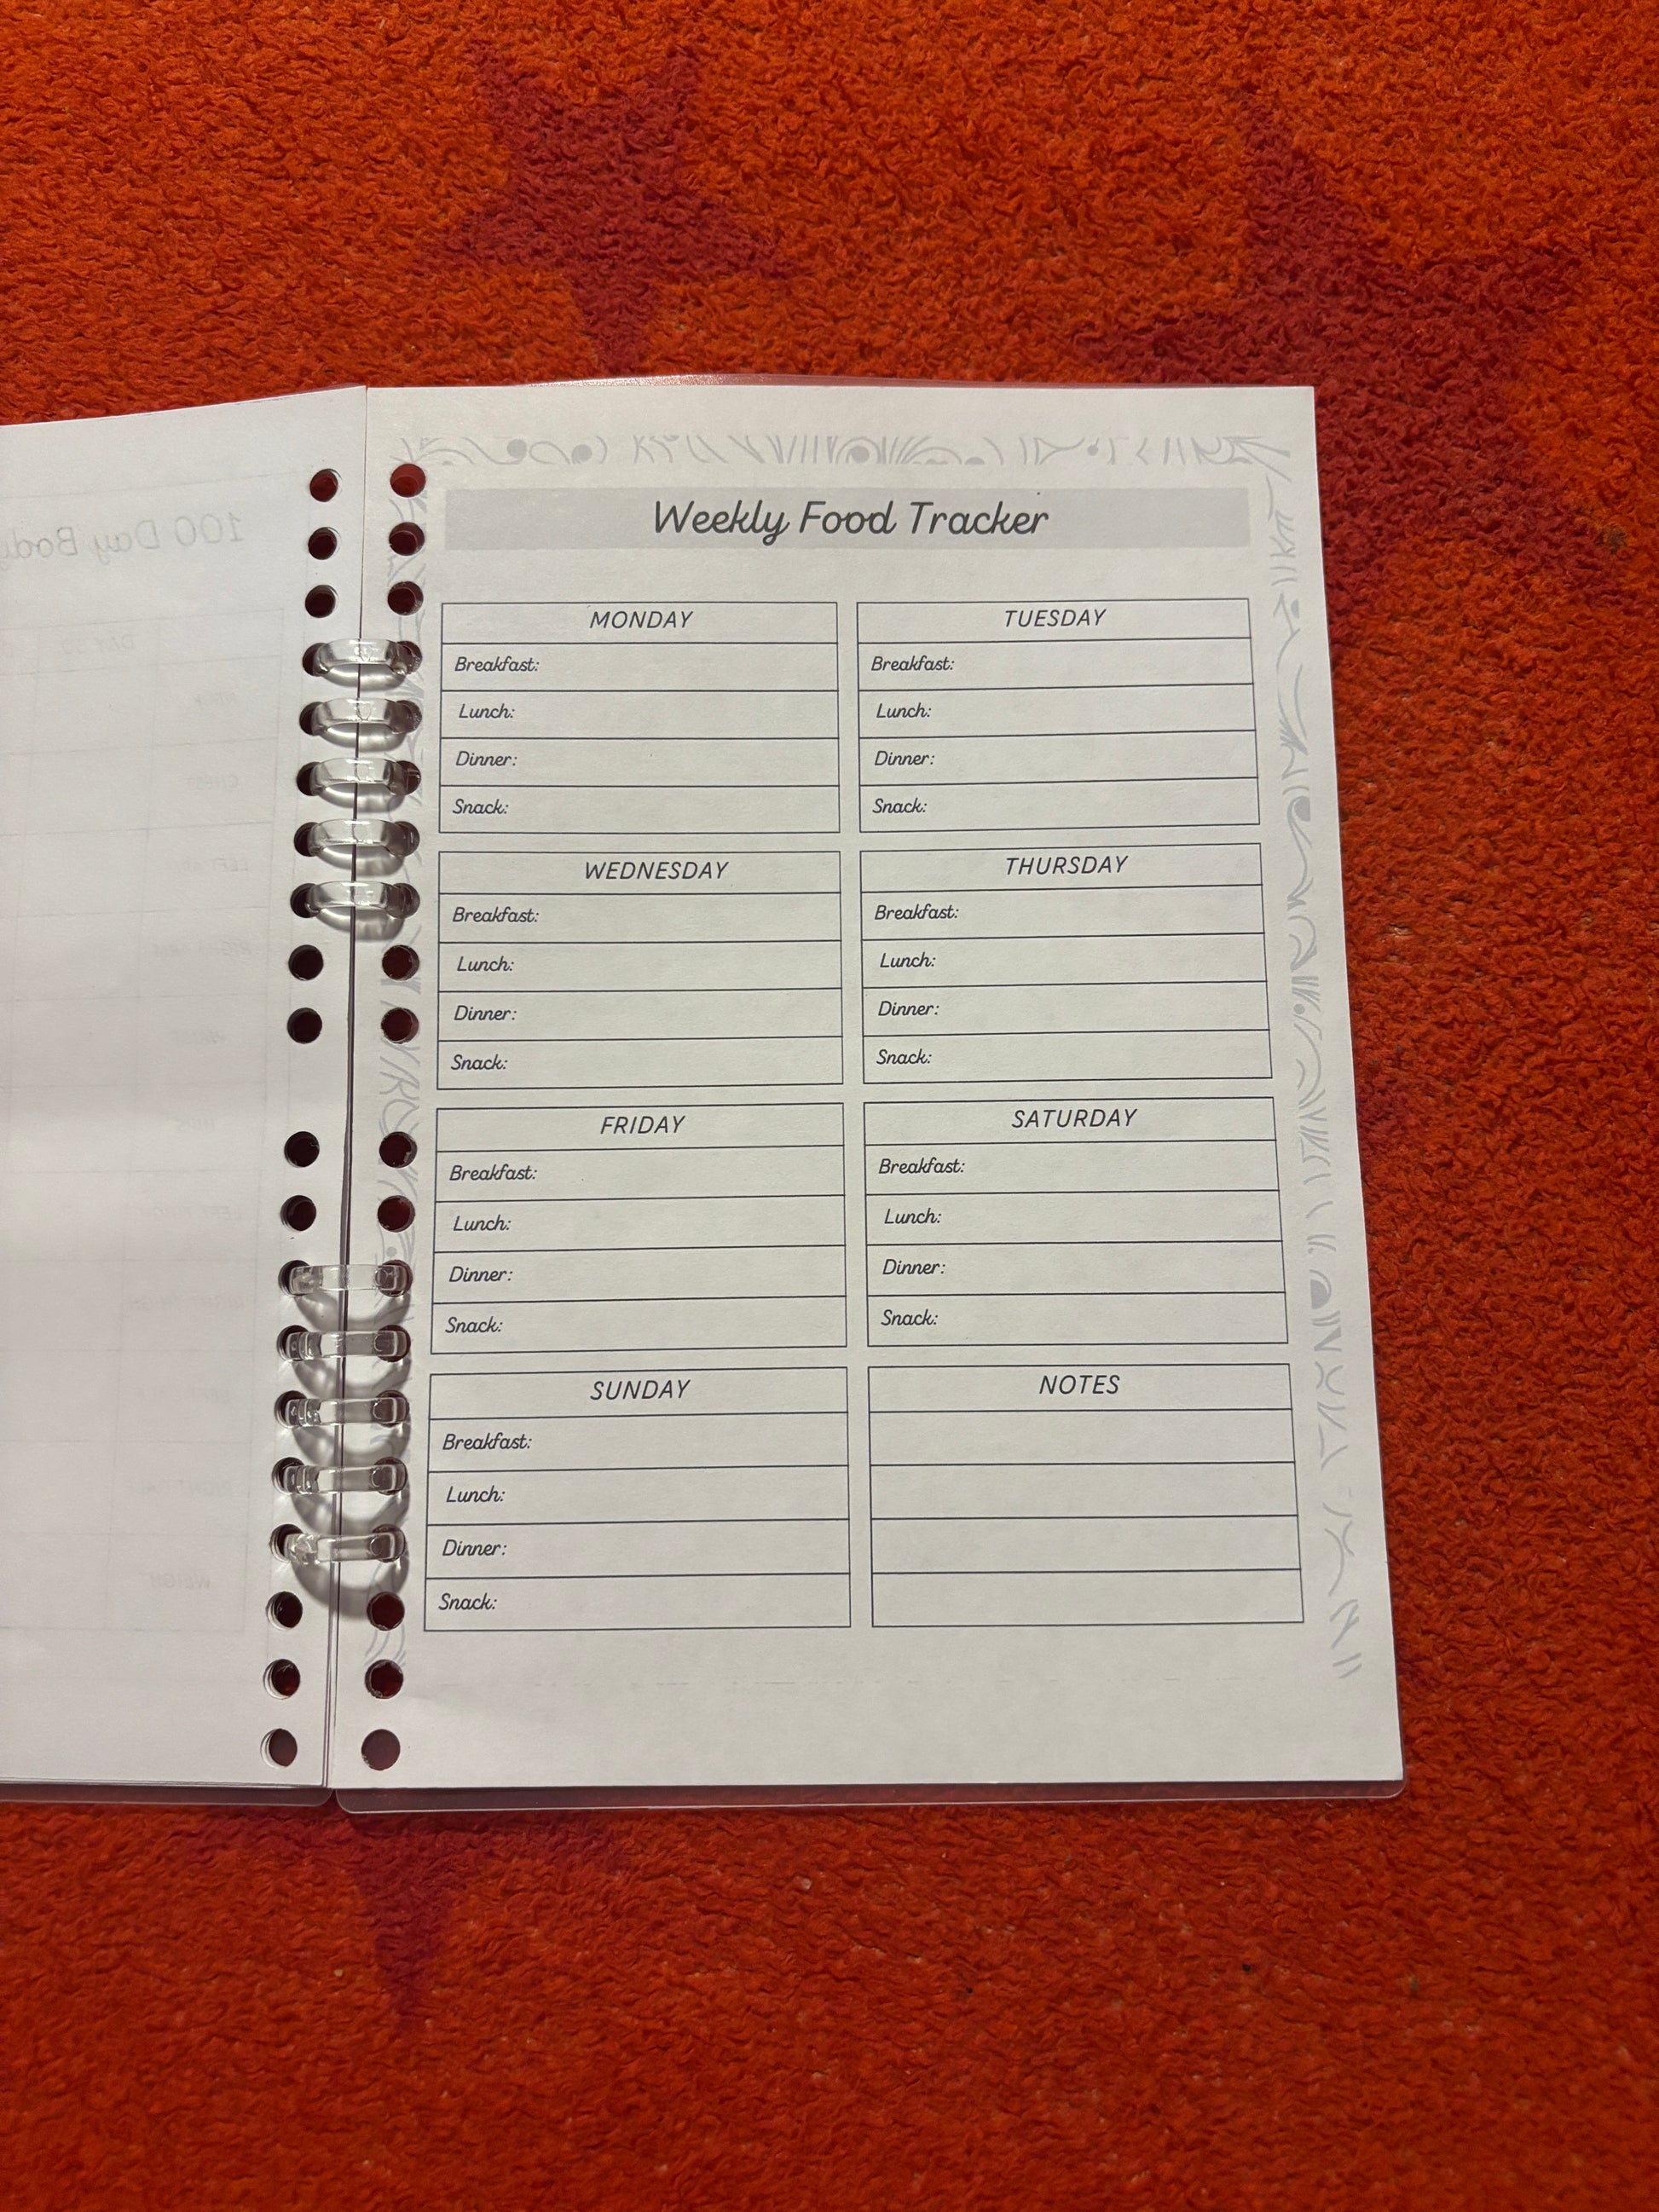 Weekly Food Tracker
MONDAY
Breakfast:
Lunch:
Dinner:
Snack:
TUESDAY
Breakfast:
Lunch:
Dinner:
Snack:
WEDNESDAY
Breakfast:
Lunch:
Dinner:
Snack:
THURSDAY
Breakfast:
Lunch:
Dinner:
Snack:
FRIDAY
Breakfast:
Lunch:
Dinner:
Snack:
SATURDAY
Breakfast:
Lunch:
Dinner:
Snack:
SUNDAY
Breakfast:
Lunch:
Dinner:
Snack:
NOTES